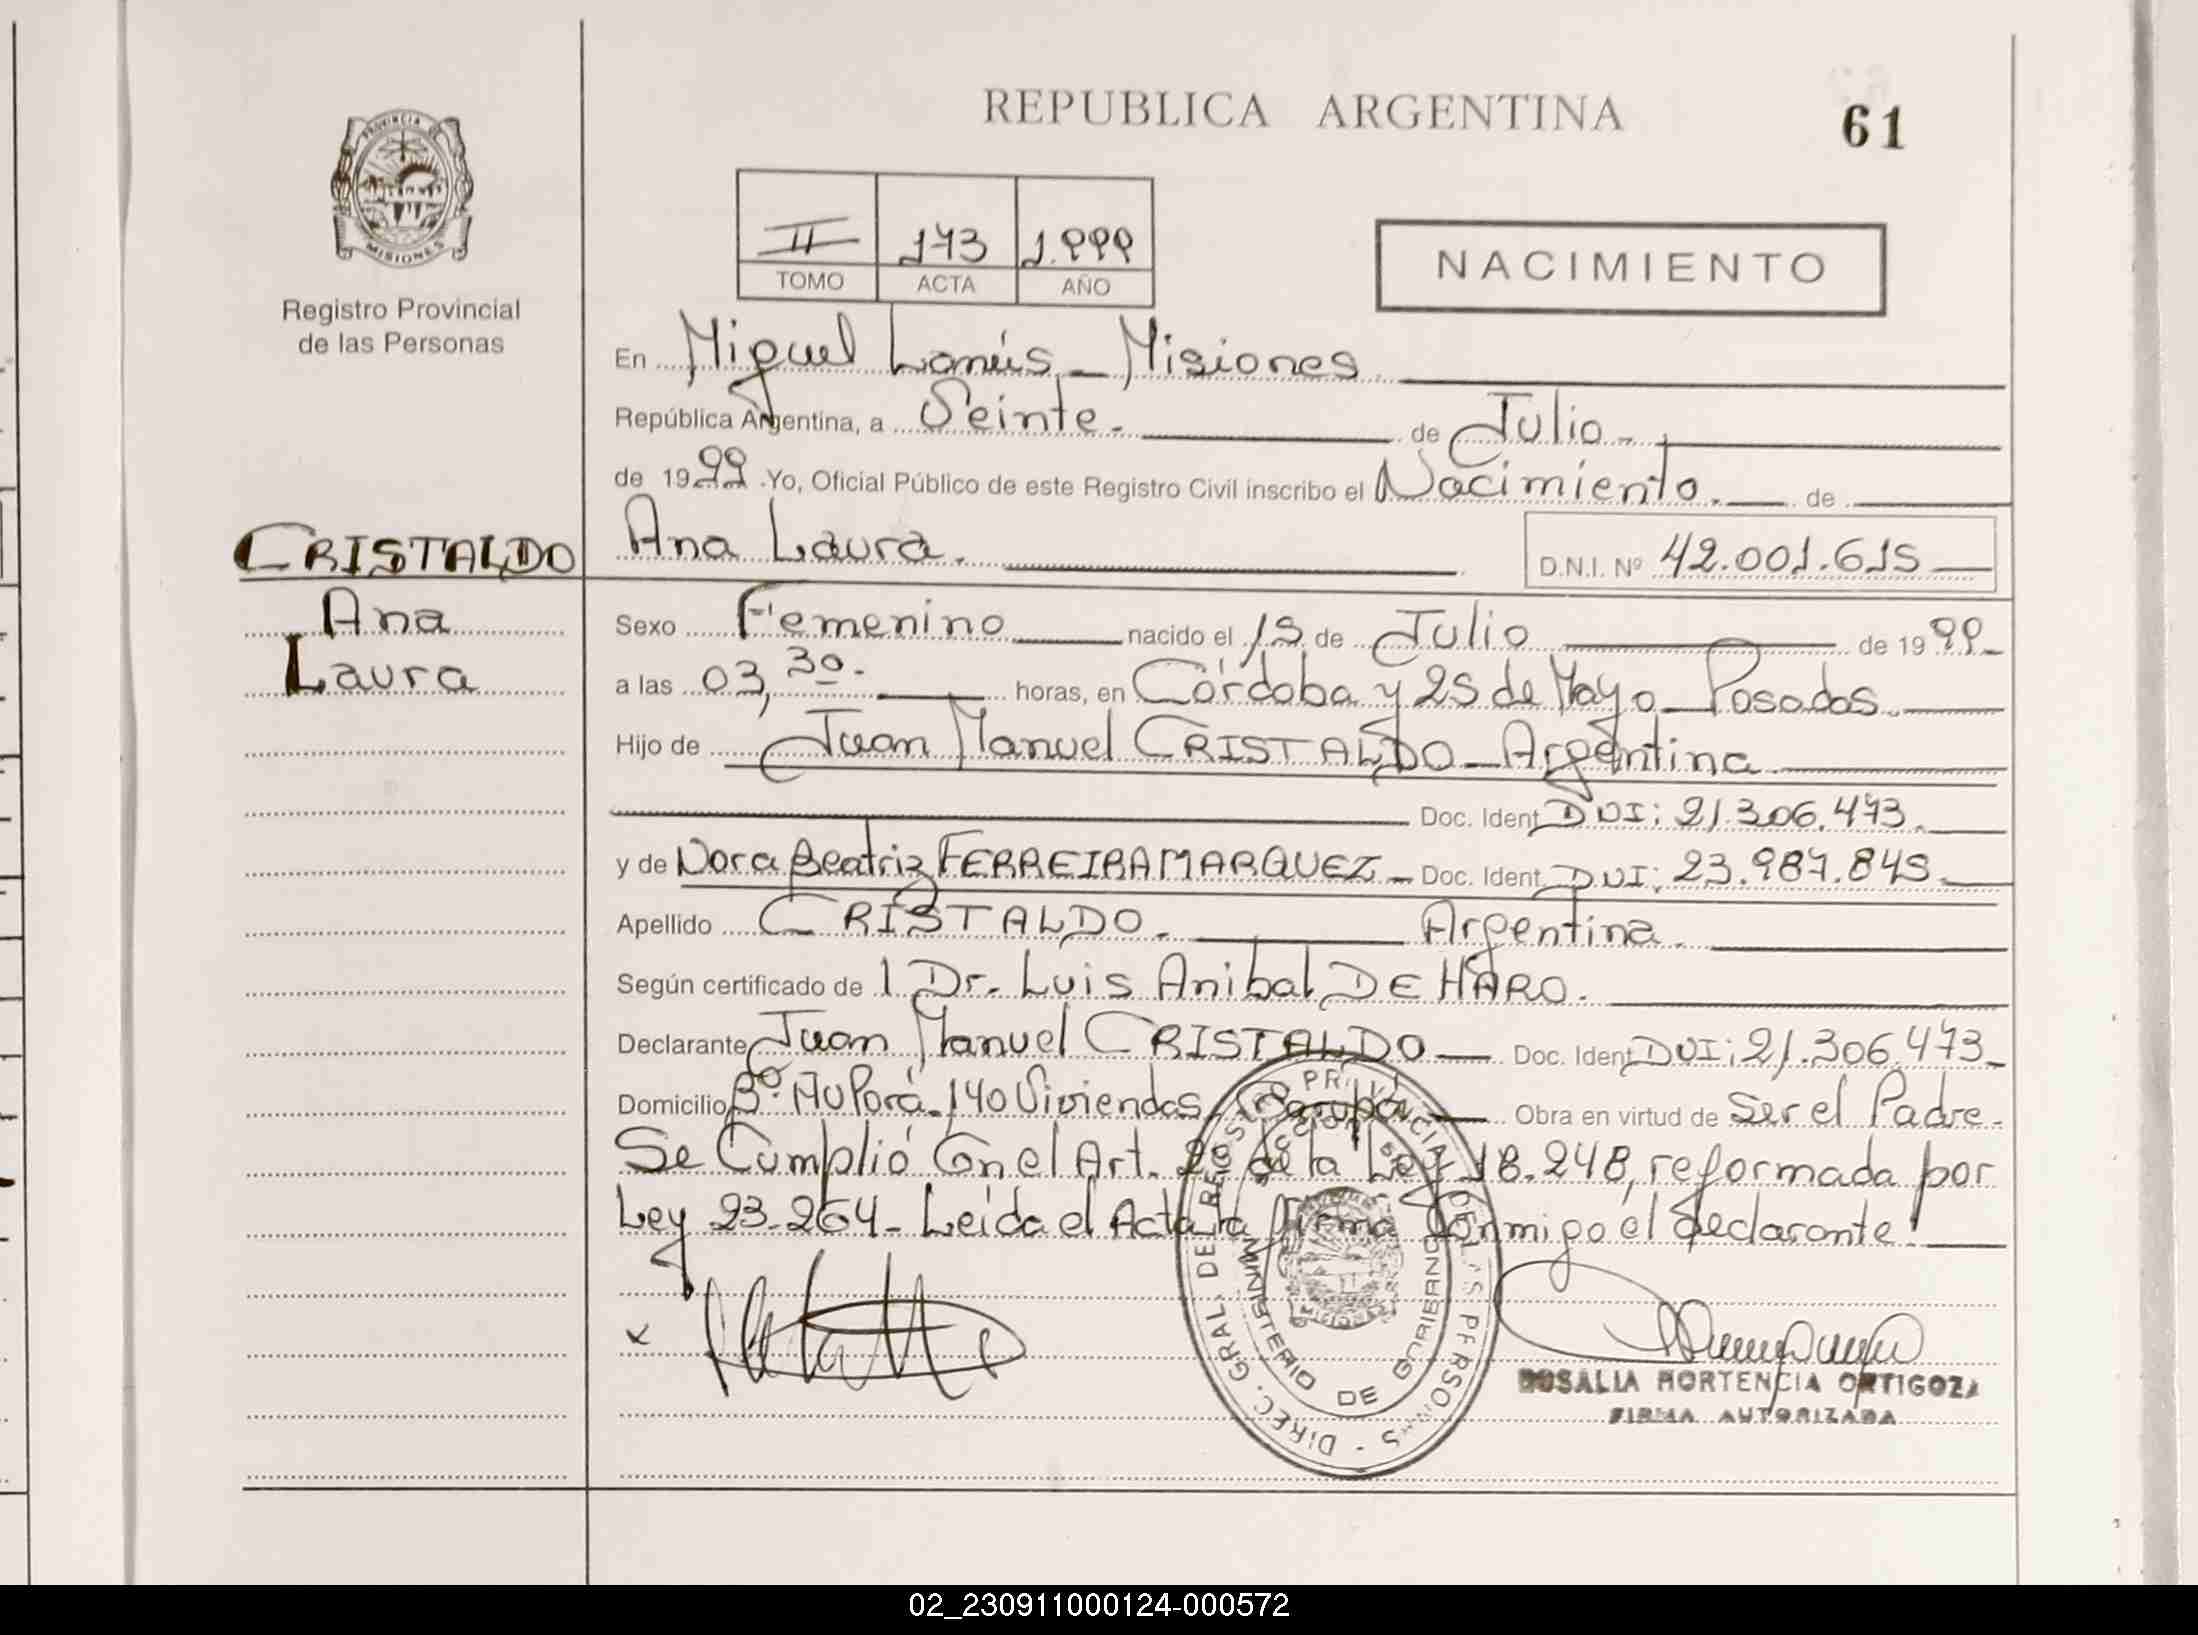 REPUBLICA ARGENTINA
61
PROVINCIA DE
MISIONES
Registro Provincial
de las Personas
II 173 1.999
TOMO ACTA AÑO
NACIMIENTO
En Miguel Lanús - Misiones
República Argentina, a Veinte. de Julio.
de 1999 .Yo, Oficial Público de este Registro Civil inscribo el Nacimiento. de
CRISTALDO
Ana
Laura
Ana Laura.
D.N.I. Nº 42.001.615
Sexo Femenino nacido el 15 de Julio de 1999
a las 03,30. horas, en Córdoba y 25 de Mayo - Posadas.
Hijo de Juan Manuel CRISTALDO - Argentina
Doc. Ident. DNI: 21.306.473.
y de Nora Beatriz FERREIRA MARQUEZ - Doc. Ident. DNI: 23.987.845.
Apellido CRISTALDO. Argentina.
Según certificado de l Dr. Luis Anibal DE HARO.
Declarante Juan Manuel CRISTALDO Doc. Ident. DNI: 21.306.473
Domicilio Bº. Ñu Porá - 140 Viviendas - Garupá. Obra en virtud de Ser el Padre.
Se Cumplió Con el Art. 2º de la Ley 18.248, reformada por
Ley 23.264 - Leida el Acta la firma Conmigo el declarante.
x
DIREC. GRAL. DEL REGISTRO PROVINCIAL DE LAS PERSONAS
MINISTERIO DE GOBIERNO
ROSALIA HORTENCIA ORTIGOZA
FIRMA AUTORIZADA
02_230911000124-000572